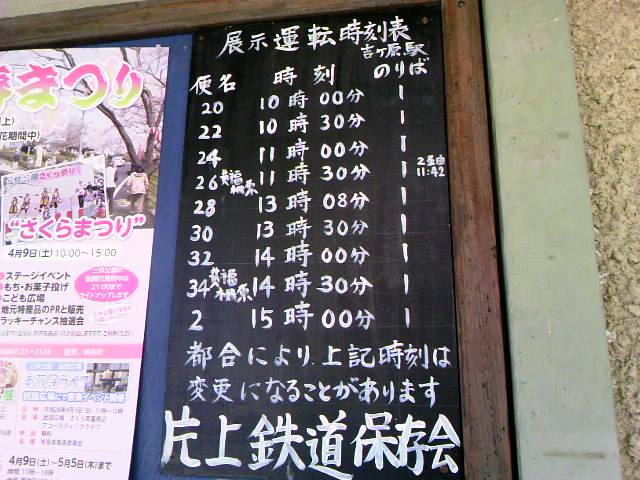 展示運転時刻表
吉ヶ原駅
便名 時刻 のりば
20 10時00分 1
22 10時30分 1
24 11時00分 1
26 11時30分 1 2番由 11:42
28 13時08分 1
30 13時30分 1
32 14時00分 1
34 14時30分 1
2 15時00分 1
都合により上記時刻は
変更になることがあります
片上鉄道保存会
春まつり
花期間中)
"さくらまつり"
4月9日(土)10:00〜15:00
●ステージイベント
●もち・お菓子投げ
●こども広場
地元特産品のPRと販売
ラッキーチャンス抽選会
三休公園の
21:00まで
ライトアップします
お花見ライブ
4月9日(土)〜5月5日(木)まで